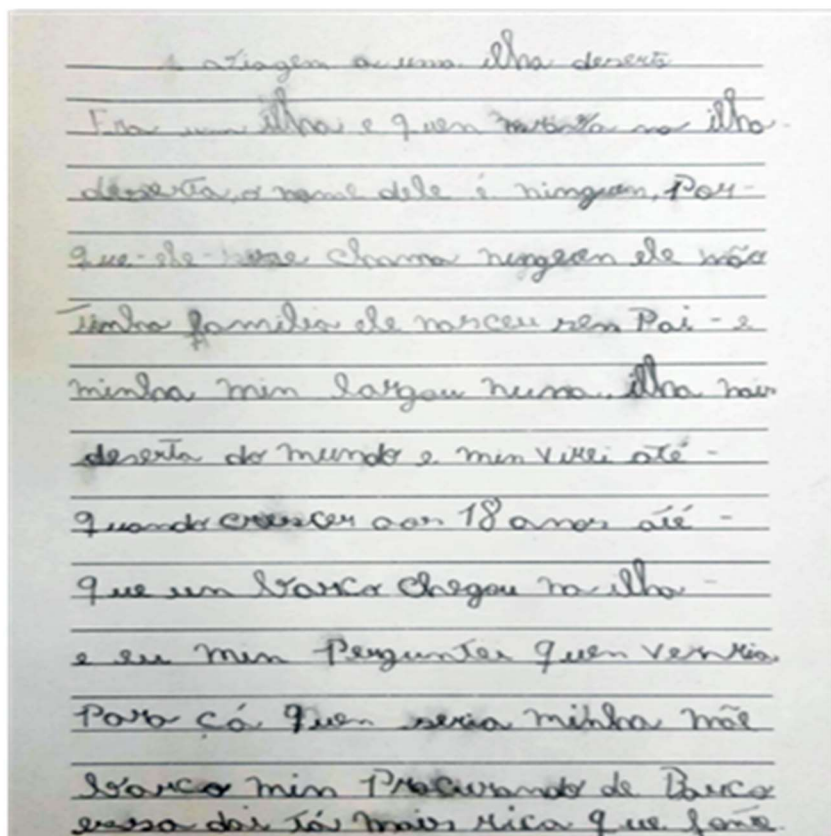 a viagem a uma ilha deserta
Era um ilha e quen na ilha
deserta, o nome dele é ninguen, Por-
que-ele- chama ningen ele não
Tinha familia ele nasceu sen Pai - e
minha min largou numa ilha mais
deserta do mundo e min virei até -
quando crescer aos 18 anos até -
que un barco chegou na ilha -
e eu min Perguntei quen verria
Para cá quen seria minha mãe
barco min Procurando de Barco
essa dai tá mais rica que